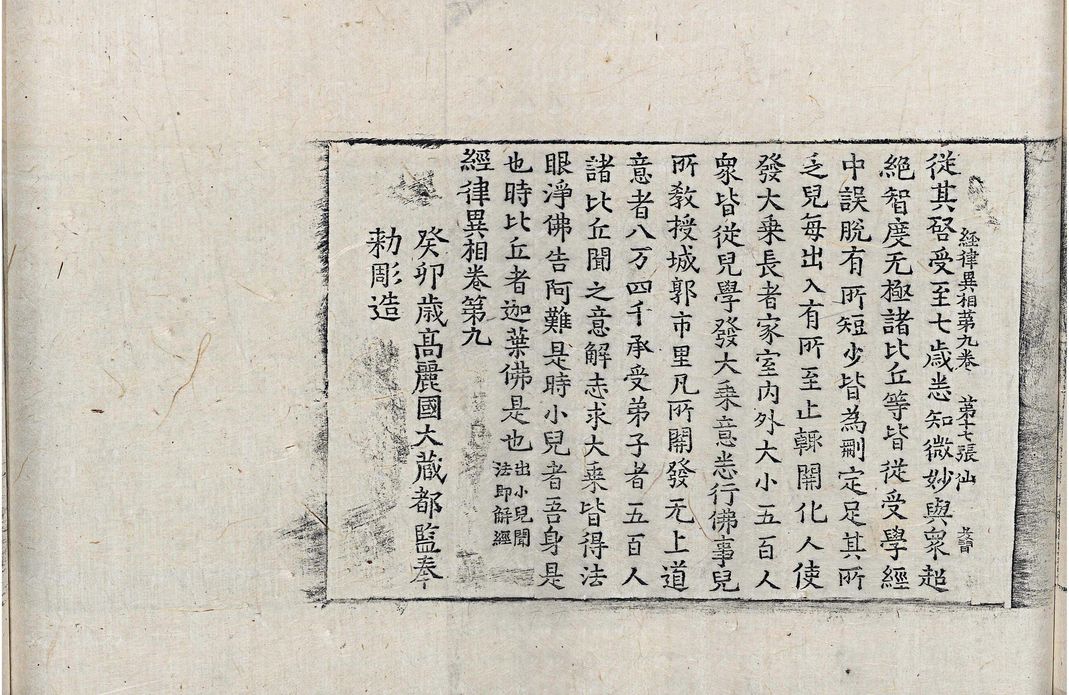 経律異相第九卷 第十七張 汕
從其啓受至七歲悉知微妙與衆超
絶智度无極諸比丘等皆從受學經
中誤脫有所短少皆為刪定足其所
乏兒每出入有所至止輒開化人使
發大乗長者家室内外大小五百人
衆皆從兒學發大乗意悉行佛事兒
所敎授城郭市里凡所開發无上道
意者八万四千承受弟子者五百人
諸比丘聞之意解志求大乗皆得法
眼淨佛告阿難是時小兒者吾身是
也時比丘者迦葉佛是也出小兒聞
法即解經
經律異相卷第九
癸卯歲高麗國大藏都監奉
勅彫造